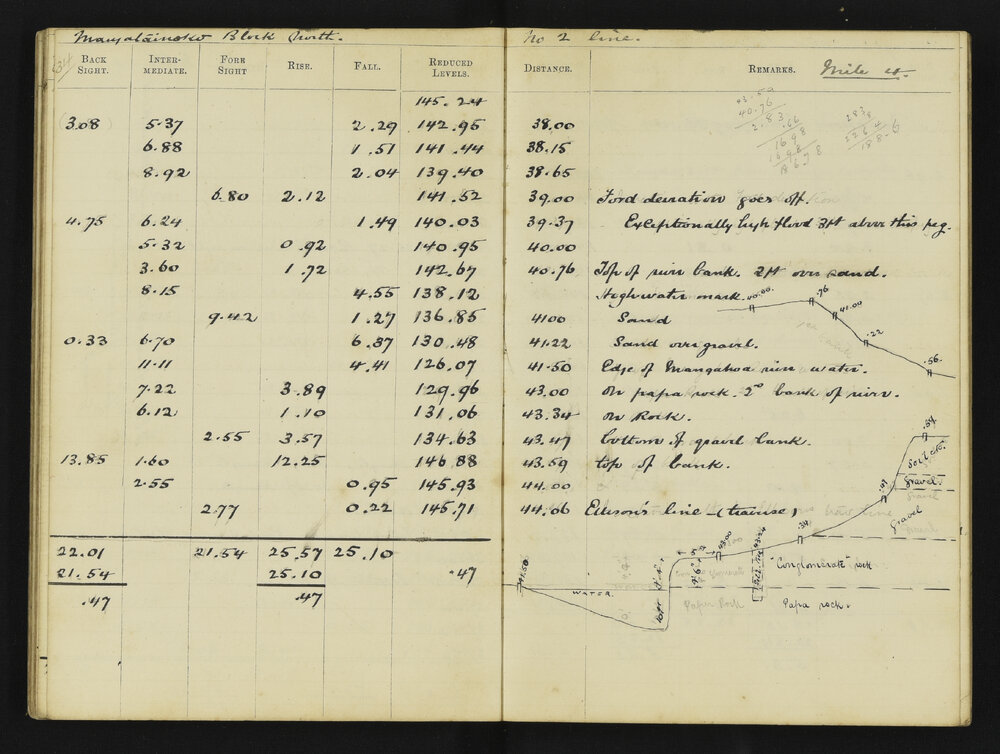 Block North. No 2 line.
BACK SIGHT. INTER-MEDIATE. FORE SIGHT RISE. FALL. REDUCED LEVELS. DISTANCE. REMARKS. Mile 4.
145.24
3.08 5.37 2.29 142.95 38.00
6.88 1.51 141.44 38.15
8.92 2.04 139.40 38.65
6.80 2.12 141.52 39.00 Ford deviation goes off.
4.75 6.24 1.49 140.03 39.37 Exceptionally high flood 3ft above this peg.
5.32 0.92 140.95 40.00
3.60 1.72 142.67 40.76 Top of river bank. 2ft over sand.
8.15 4.55 138.12 Highwater mark.
9.42 1.27 136.85 41.00 Sand
0.33 6.70 6.37 130.48 41.22 Sand over gravel.
11.11 4.41 126.07 41.50 Edge of Mangahoa river water.
7.22 3.89 129.96 43.00 On papa rock. 2º bank of river.
6.12 1.10 131.06 43.34 On Rock.
2.55 3.57 134.63 43.47 bottom of gravel bank.
13.85 1.60 12.25 146.88 43.59 top of bank.
2.55 0.95 145.93 44.00
2.77 0.22 145.71 44.06 line - (traverse)
22.01 21.54 25.57 25.10
21.54 25.10 .47
.47 .47
40.00
.76
41.00
.22
.56
.59
Gravel.
.47
Gravel
.34
43.00
41.50
WATER.
"Conglomerate" rock
Paper Rock
Papa rock.